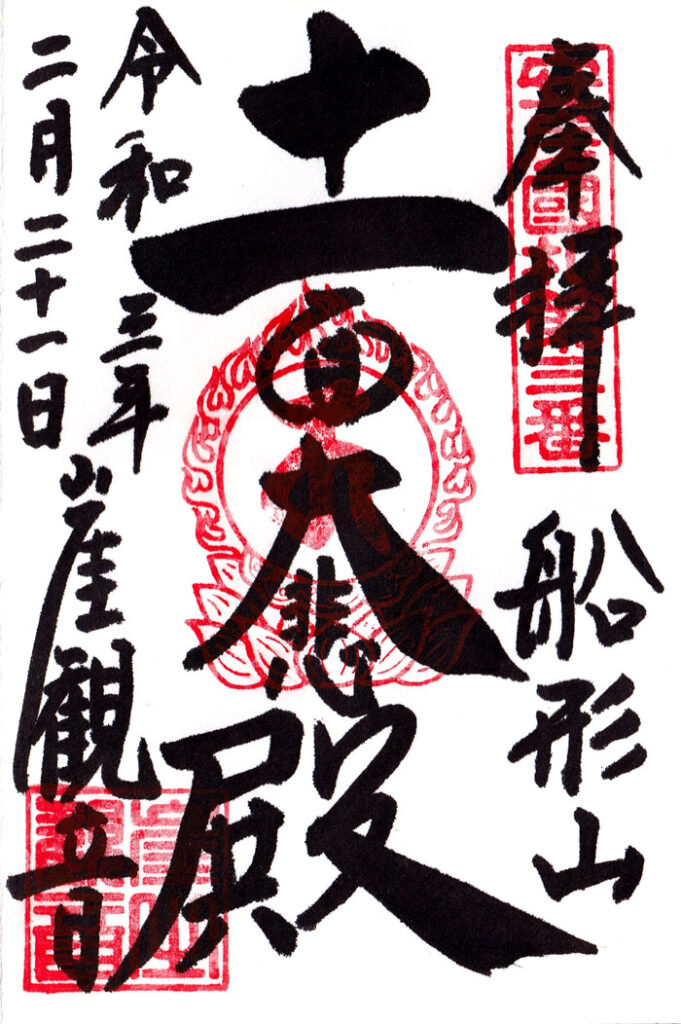 奉拝
船形山
十一面
大悲殿
令和三年
二月二十一日
崖観音